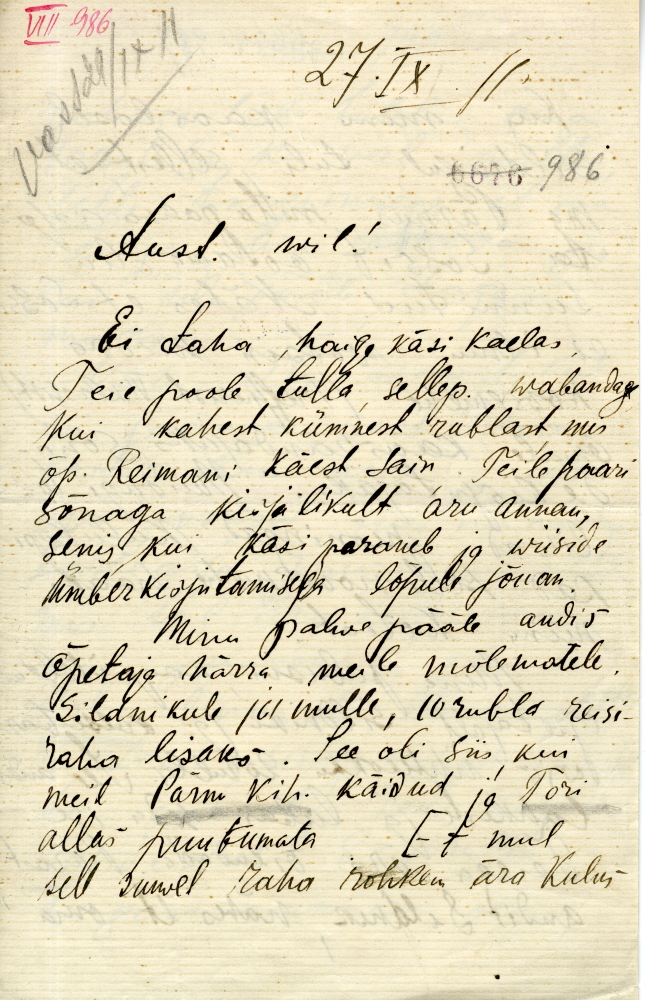 VIII 986
vast 29/IX 11
27. IX. 11.
6676 986
Aust. wil!
Ei taha, haige käsi kaelas,
Teie poole tulla, sellep. wabandage
kui kahest kümnest rublast, mis
õp. Reimani käest sain Teile paari
sõnaga kirjalikult aru annan,
senis kui käsi paraneb ja wiiside
ümberkirjutamisega lõpule jõuan.
Minu palwe pääle andis
õpetaja härra meile mõlematele,
Sildnikule ja mulle, 10 rubla reisi-
raha lisaks. See oli siis, kui
meil Pärnu kih. käidud ja Tori
alles puutumata Et mul
sell suwel raha rohkem ära kulus